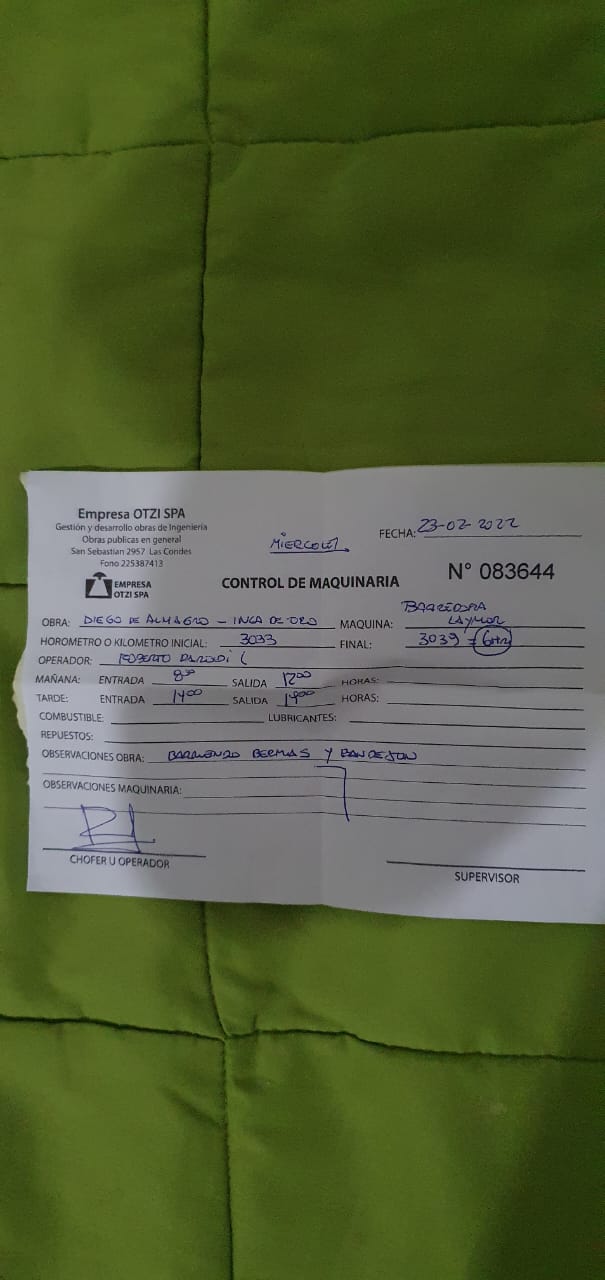 Empresa OTZI SPA
Gestión y desarrollo obras de Ingenieria
Obras publicas en general
San Sebastian 2957 Las Condes
Fono 225387413
EMPRESA
OTZI SPA
MIERCOLES.
FECHA: 23-02-2022
CONTROL DE MAQUINARIA
N° 083644
OBRA: DIEGO DE ALMAGRO - INCA DE ORO MAQUINA: BARREDORA
LAYMOR
HOROMETRO O KILOMETRO INICIAL: 3033 FINAL: 3039 = 6 Hrs
OPERADOR: ROBERTO
MAÑANA: ENTRADA 8:00 SALIDA 12:00 HORAS:
TARDE: ENTRADA 14:00 SALIDA 19:00 HORAS:
COMBUSTIBLE: LUBRICANTES:
REPUESTOS:
OBSERVACIONES OBRA: BARRIENDO BERMAS Y BANDEJON
OBSERVACIONES MAQUINARIA:
CHOFER U OPERADOR
SUPERVISOR